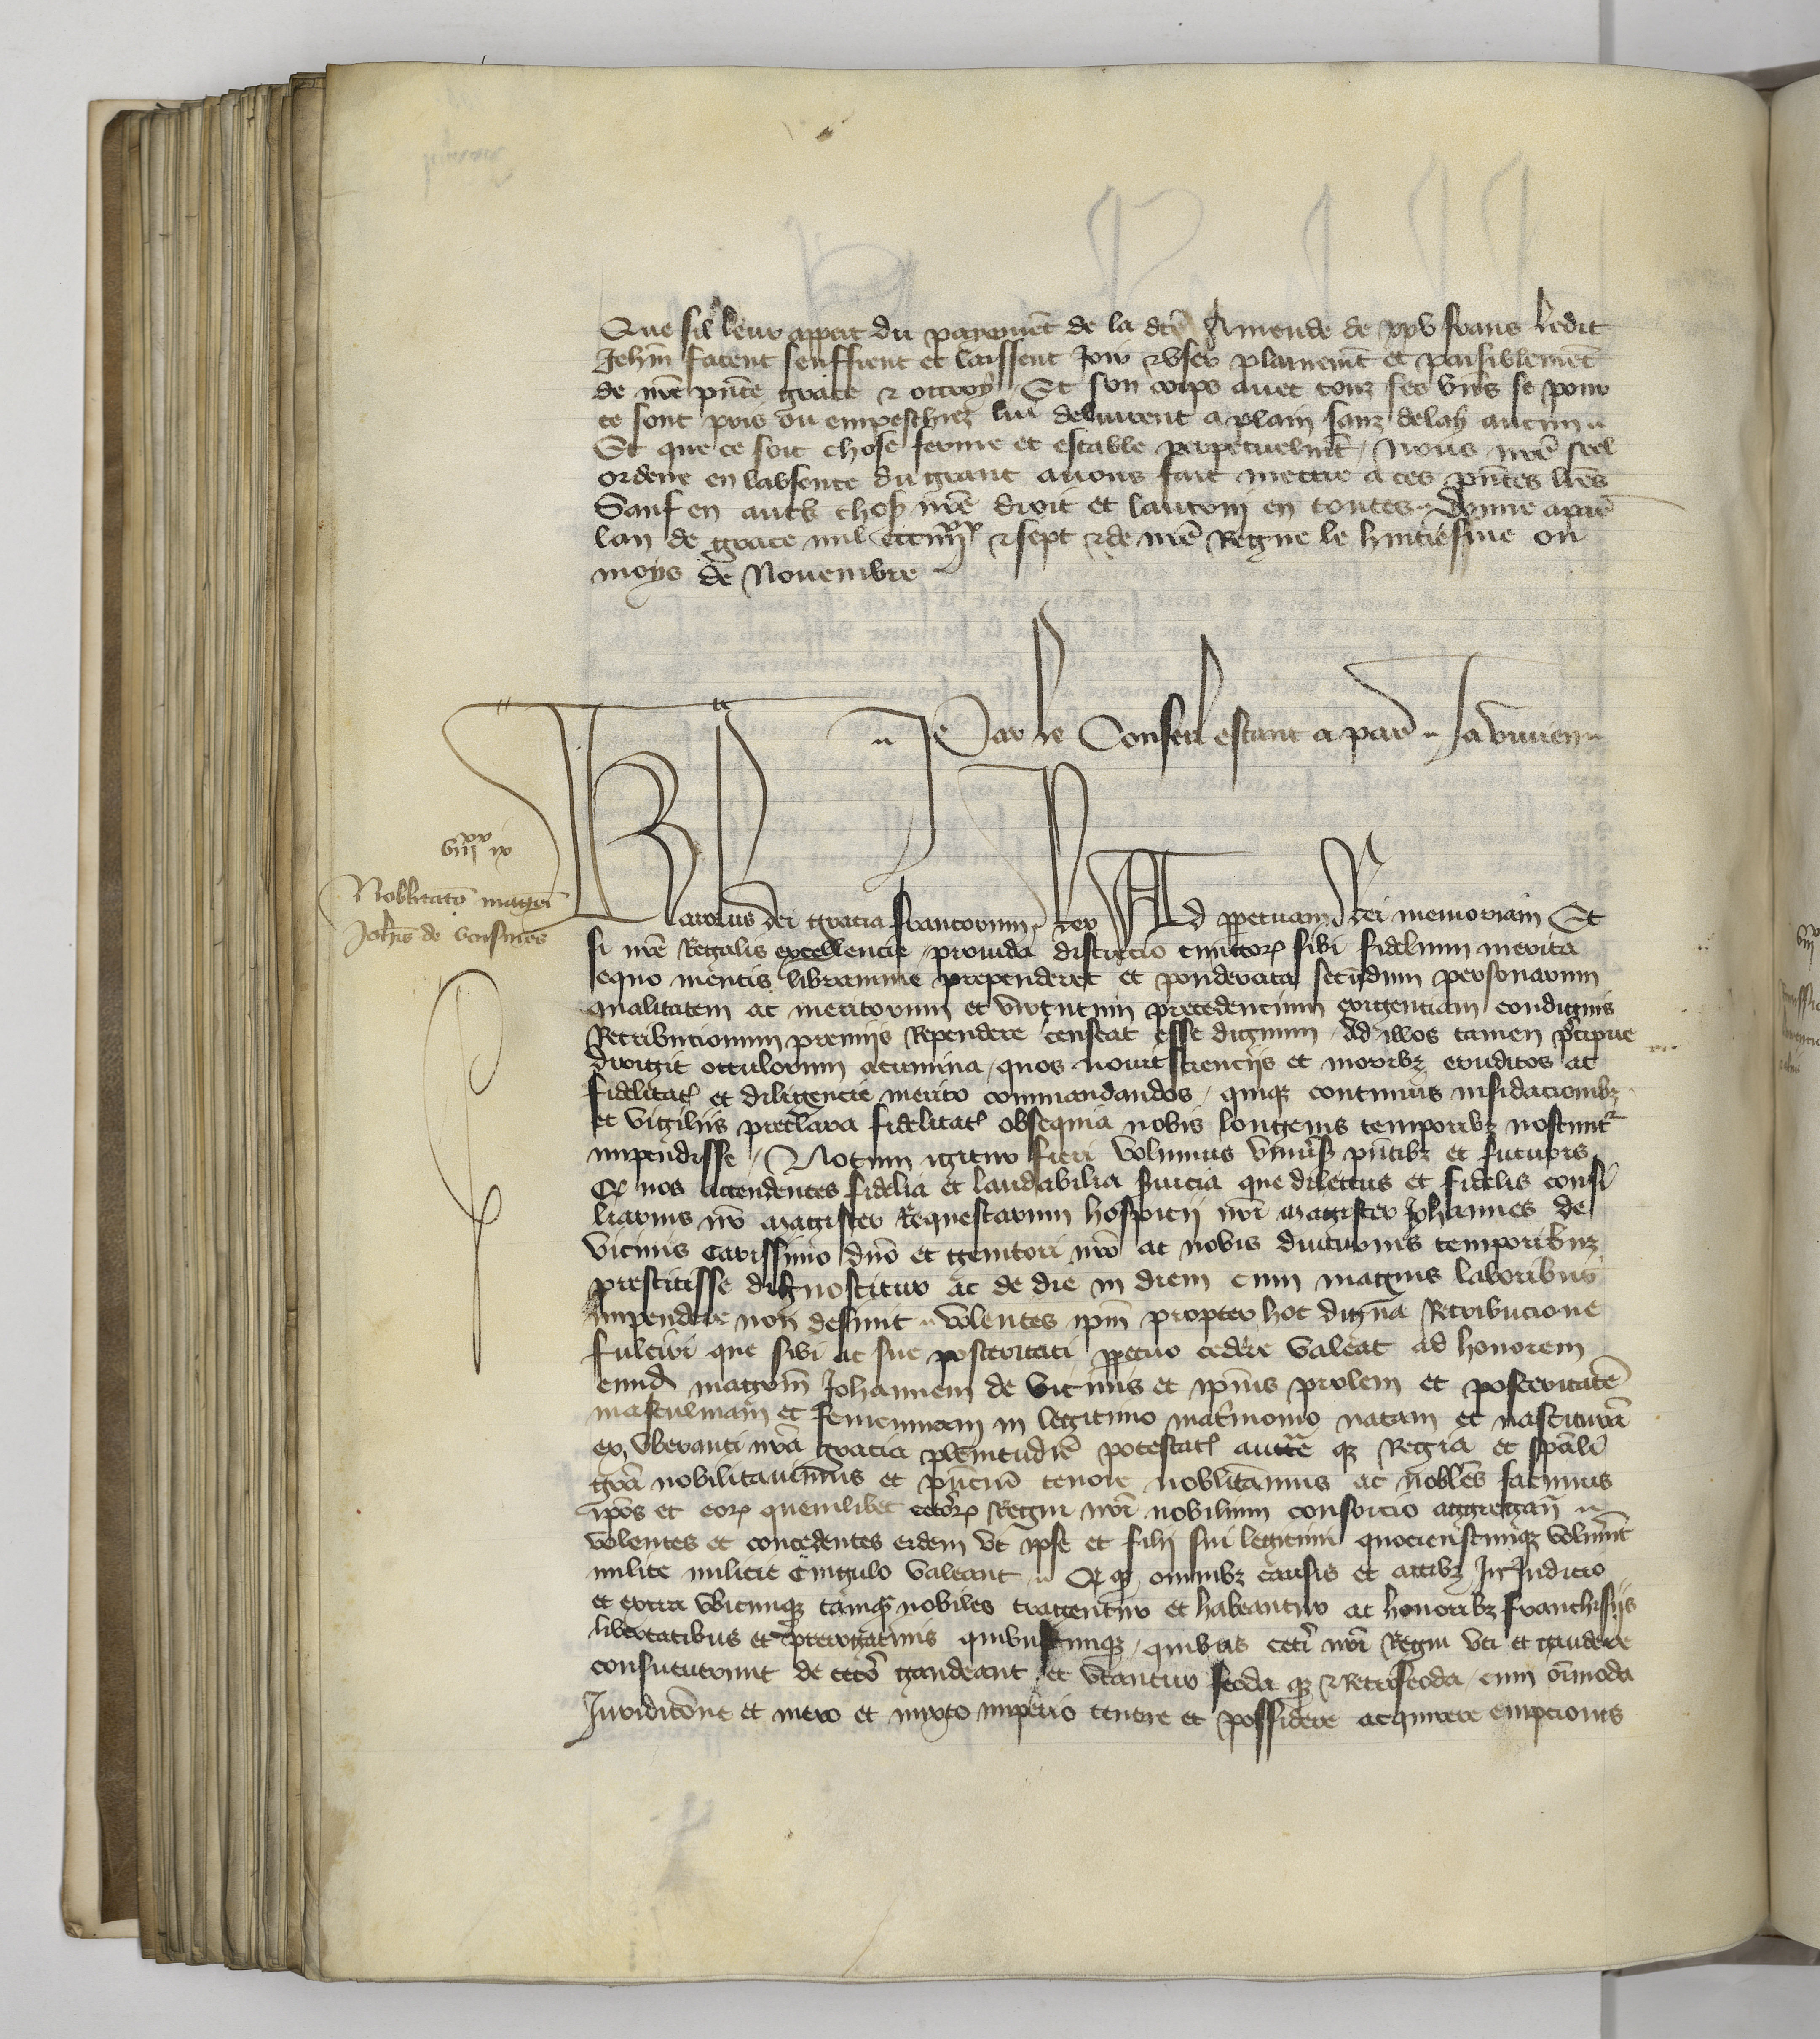 Que sil leur appert du payemẽt de la dcẽ Amende de xxv frans ledit
Jehñ facent seuffrent et laissent Joir ⁊ user plainemẽt et paisiblemẽt
de nrẽ pñte grace ⁊ ottroy / Et son corps avec touz ses biẽs se pour
ce sont pris ou empeschez lui delivrent a plain sanz delay aucun
Et que ce soit chose ferme et estable perpetuelmẽt / Nous nrẽ seel
ordene en labsence du grant avons fait mettre a ces pñtes lrẽs
Sauf en autˢ choses nrẽ droit et lautruy en toutes Donne a parˢ
lan de grace mil ccc iiiiˣˣ ⁊ sept ⁊ de nrẽ Regne le huitiesme ou
moys de Novembre
Par le Conseil estant a parˢ Ja vivien
viiiˣˣ ix
Nobilitatõ magrĩ
Johĩs de voisines
Karolus dei gracia francorum rex Ad ppetuam Rei memoriam Et
si nrẽ Regalis excellencie provida discrecio cunctoꝝ sibi fidelium merita
equo mentis libramine prependeret et ponderata secũdum personarum
qualitatem ac meritorum et virtutum precedencium exigenciam condignis
Retribucionum premiis Rependere censeat esse dignum / Ad illos tamen p̃cipue
dirigit occulorum acumina / quos novit scienciis et moribꝫ eruditos ac
fidelitatꝭ et diligencie merito commandandos / quiqꝫ continuis insidacionibꝫ
et vigiliis preclara fidelitatꝭ obsequia nobis longevis temporibꝫ noscunt͛
impendisse / Notum igitur fieri volumus univˢsis pñtibꝫ et futuris
Qꝫ nos attendentes fidelia et laudabilia sˢvicia que dilectus et fidelis consi
liarius nr̃ magister Requestarum hospicii nrĩ magister Johannes de
vicinis carissimo dnõ et genitori nrõ ac nobis diuturnis temporibus
prestitisse dignoscitur ac de die in diem cum magnis laboribus
impendere non desinit volentes ipm̃ propter hoc digna Retribucione
fulciri que sibi ac sue posteritati ppetuo cedere valeat ad honorem
eund̃ magrm̃ Johannem de vicinis et ipĩus prolem et posteritatẽ
masculinam et femeninam in legitimo mat̃monio natam et nasciturã
ex uberanti nrã gracia plenitudiẽ potestatꝭ auctᵗᵉ qꝫ Regia et spãli
grã nobilitavimus et pñciũ tenore nobilitamus ac nobiles facimus
ipos et eoꝝ quemlibet cetˢoꝝ Regni nrĩ nobilium consorcio aggregañ
volentes et concedentes eidem ut ipse et filii sui legitimi quocienscunqꝫ voluẽrint
milite milicie Cingulo valeant Qꝫ qꝫ omnibꝫ causis et actibꝫ In Judicio
et extra ubicunqꝫ tanqꝫ nobiles tractentur et habeantur ac honoribꝫ franchisiis
libertatibus et prerogativis quibuscunqꝫ / quibus cetˢi nrĩ Regni uti et gaudere
consueverunt de cetˢo gaudeant et utantur feoda qꝫ ⁊ Retrofeoda / cum oĩmoda
Juridicõne et mero et mixto imperio tenere et possidere acquirere empcionis